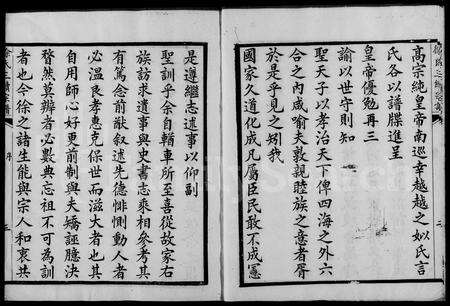 高宗純皇帝南巡幸越越之如氏言
氏各以譜牒進呈
皇帝優勉再三
諭以世守則知
聖天子以孝治天下俾四海之外六
合之內咸喻夫敦親睦族之意者胥
於是乎見之矧我
國家久道化成凡屬臣民敢不成憲
是遵繼志述事以仰副
聖訓乎余自輶車所至喜從故家右
族訪求遺事與史書志乘相參考其
有篤念前猷叙述先德悱惻動人者
必溫良孝惠克保世而滋大者也其
自用師心好更前制與夫矯誣臆決
瞀然莫辨者必數典忘祖不可為訓
者也今徐之諸生能與宗人和衷共
序